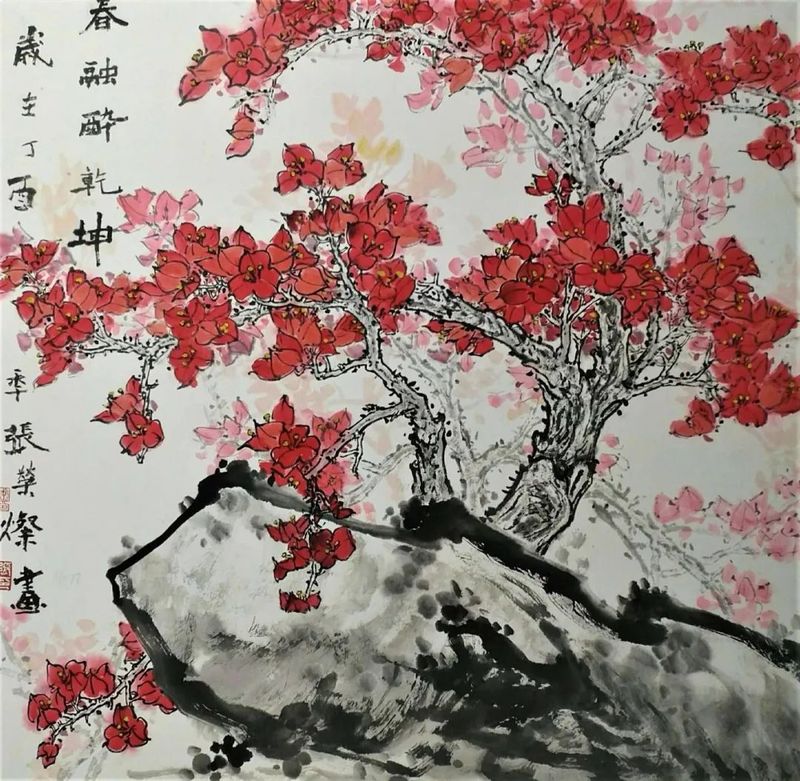 春融醉乾坤
歲在丁酉年張榮燦畫